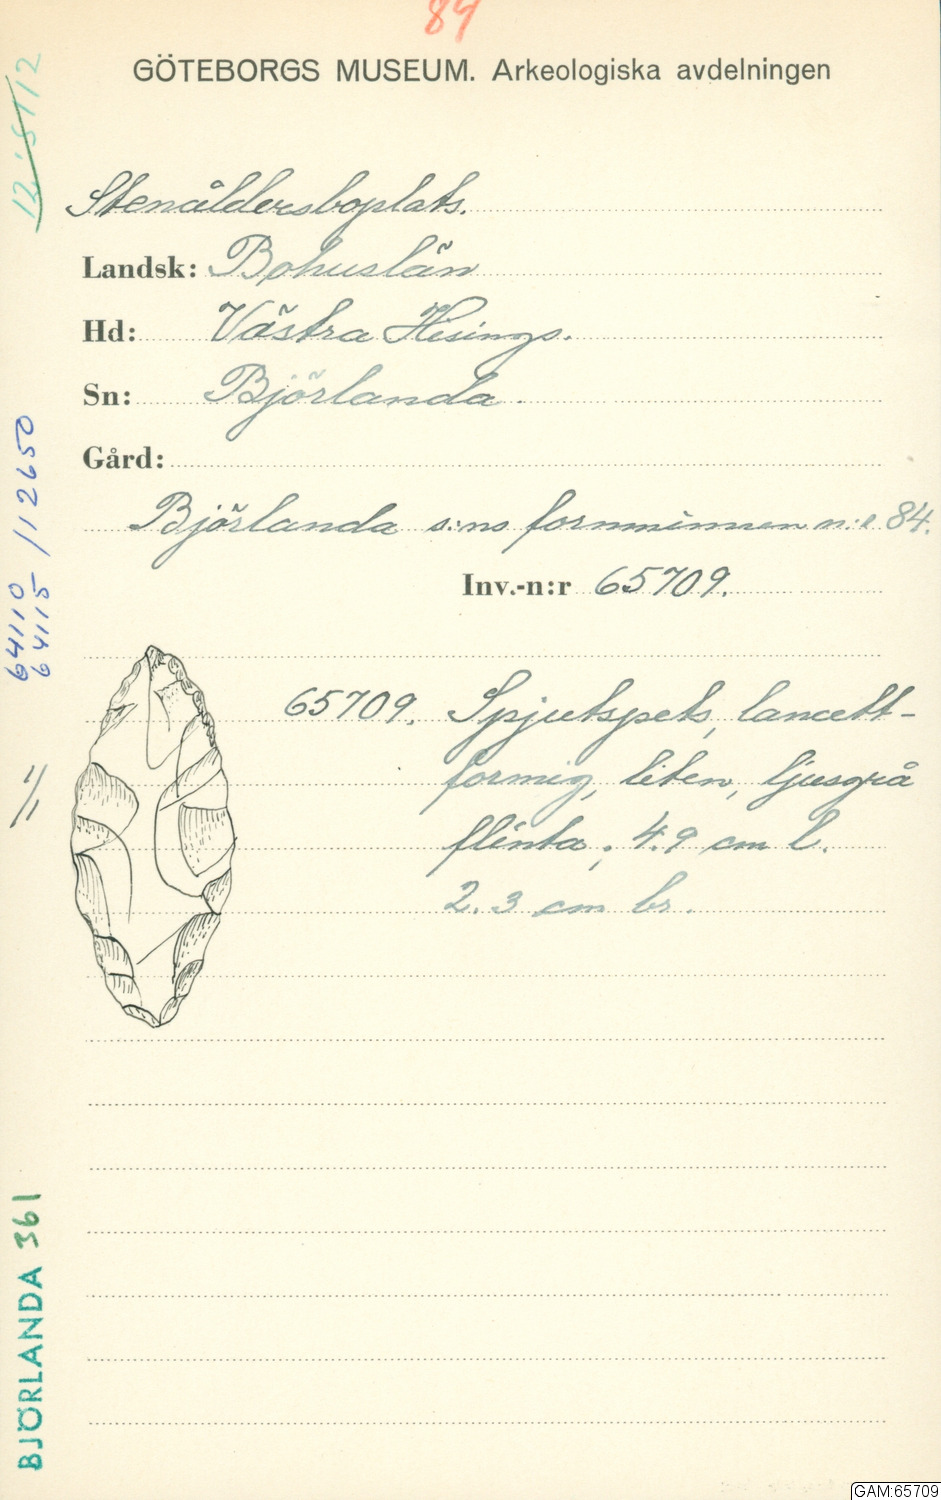 84
GÖTEBORGS MUSEUM. Arkeologiska avdelningen
Stenåldersboplats.
Landsk: Bohuslän
Hd: Västra Hisings.
Sn: Björlanda.
Gård:
Björlanda s:ns fornminnen n:r 84.
Inv.-n:r 65709.
65709. Spjutspets, lancett-
formig, liten, ljusgrå
flinta; 4.9 cm l.
2.3 cm br.
64110
64115 /12650
1/1
BJÖRLANDA 361
GAM:65709